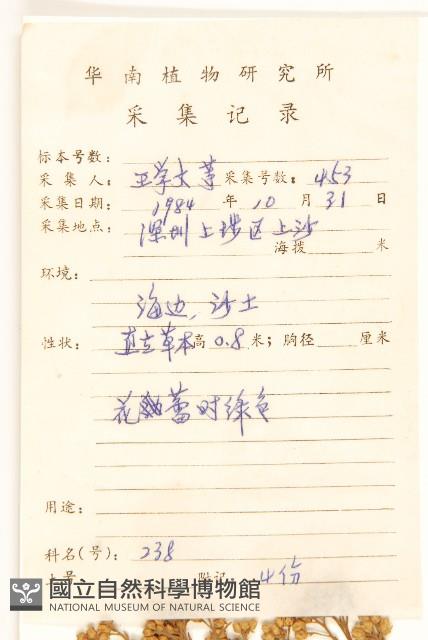 华南植物研究所
采集记录
标本号数：
采集人： 王学文等 采集号数： 453
采集日期： 1984 年 10 月 31 日
采集地点： 深圳上埗区上沙
海拨 米
环境：
海边，沙土
性状： 直立草本 高 0.8 米；胸径 厘米
花蕾时绿色
用途：
科名(号)： 238
附记 4份
國立自然科學博物館
NATIONAL MUSEUM OF NATURAL SCIENCE